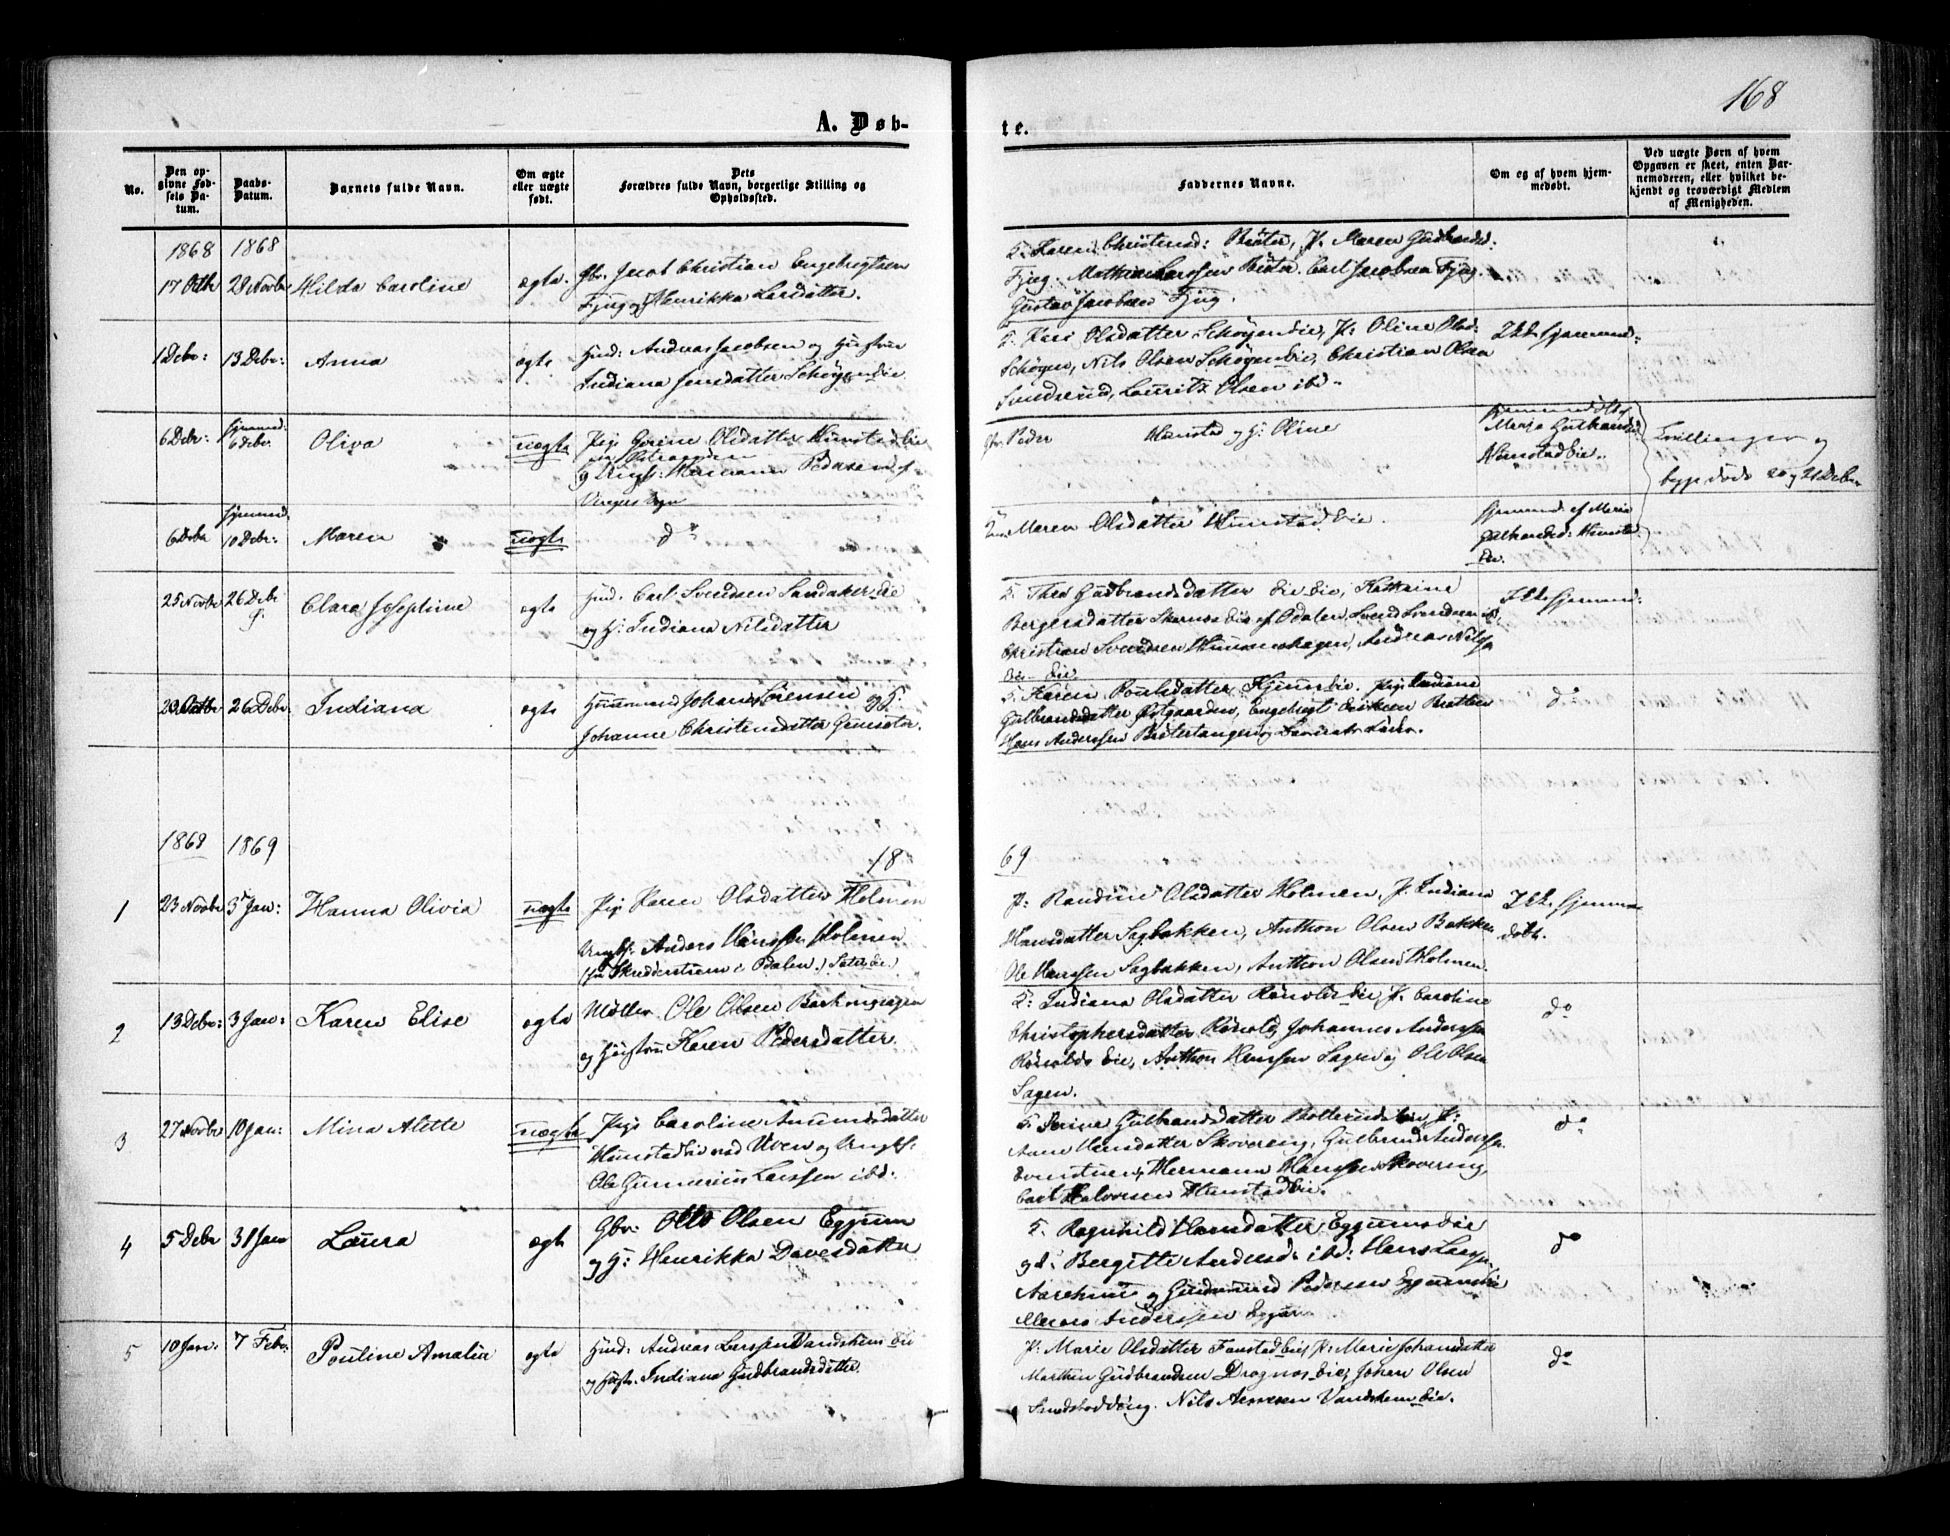 168
A. Døb-
te.
No.
Den opgivne Fødsels Datum.
Daabs-Datum.
Barnets fulde Navn.
Om ægte eller uægte født.
Dets Forældres fulde Navn, borgerlige Stilling og Opholdssted.
Faddernes Navne.
Om og af hvem hjemmedøbt.
Ved uægte Børn af hvem Opgaven er skeet, enten Barnemoderen, eller hvilket bekjendt og troværdigt Medlem af Menigheden.
1868 1868
17 Octb 28 Novbr Hilda Caroline ægte Gbr. Jacob Christian Engebrigtsen
Fjug og Henrikka Larsdatter.
F. Karen Christensd: Brøter, P. Maren Gudbrandsd:
Fjug. Mathias Larssen Brøter. Carl Jacobsen Fjug.
Gustav Jacobsen Fjug.
1 Debr: 13 Debr: Anna ægte Huud: Andreas Jacobsen og Hustru
Indiana Jensdatter Schøyenseie
F. Kari Olsdatter Schøyenseie, P: Oline Olsd:
Schøyen, Nils Olsen Schøyenseie, Christian Olsen
Sundserud, Lauritz Olsen ibd.
Ikke hjemmed:
6 Debr: hjemmed: 6 Debr. Oliva uægte Pige Gorine Olsdatter Hunstadeie
og Ungk: Hermann Pedersen af
Vinger Sogn
Gbr. Peder Hunstad og H: Oline
hjemmedøbt af
Maria Gulbrandsd
Hunstadeie.
Tvillinger og
begge døde 20 og 21 Debr
6 Debr hjemmed. 10 Debr: Maren uægte do
Maren Olsdatter Hunstadeie.
hjemmed. af Maria
Gulbrandsd: Hunstad
Eie.
25 Novbr 26 Debr Clara Josephine ægte Huud. Carl Svendsen Sandakerseie
og H: Indiana Nilsdatter
F. Thea Gudbrandsdatter Eie, Kathrine
Bergersdatter Skarnes Eie af Odalen, Svend Svendsen ibd,
Christian Svendsen Hummenhagen, Andreas Nilsen
Eie
Ikke hjemmed:
26 Debr. Indiana ægte Huusmand Johan Sørensen og H.
Johanne Christensdatter
F. Karen Poulsdatter Kjernseie. Pige Indiana
Gulbrandsdatter Østgaarden, Engebrigt Eriksen Bratten
Hans Anderssen Brøtertangen og
do
1868 1869
18 69
1 23 Novbr 3 Jan: Hanna Olivia uægte Pige Karen Olsdatter Holmen
Ungk: Anders Hanssen Holmen
F. Randine Olsdatter Holmen, P. Indiana
Hansdatter Sagbakken, Anthon Olsen Bakken
Ole Hanssen Sagbakken, Anthon Olsen Holmen.
Ikke hjemme
døbt.
2 13 Debr: 3 Jan: Karen Elise ægte Møller Ole Olsen
og Hustru Karen Pedersdatter.
F: Indiana Olsdatter Rønolds Eie, P. Caroline
Christophersdatter Rønold, Johannes Anderssen
Rønolds Eie, Anthon Hanssen Sagen og Ole Olsen
Sagen.
do
3 27 Novbr 10 Jan: Mina Alette uægte Pige Caroline Amundsdatter
Hunstadeie ved Aaen og Ungk:
Ole Gunerius Larssen ibd.
F. Serine Gulbrandsdatter
Anne Hansdatter Skovering, Gulbrand Anderssen
Hermann Hanssen Skovering,
Carl Halvorsen Hunstadeie.
do
4 5 Debr 31 Jan Laura ægte Gbr. Otto Olsen Eggum
og H: Henrikka Davesdatter
F. Ragnhild Hansdatter Eggumseie
Bergitte Andersd: ibd: Hans Larssen
og Gudmund Pedersen Eggumseie
Anderssen Eggum
do
5 10 Jan: 7 Febr. Pouline Amalia ægte Huud: Andreas Larssen Vandshum Eie
og Hustr. Indiana Gudbrandsdatter
P: Marie Olsdatter Fanstadeie, P: Marie Johansdatter
Marthin Gudbrandsen Drognes Eie, Johan Olsen
Nils Vandshum Eie.
do